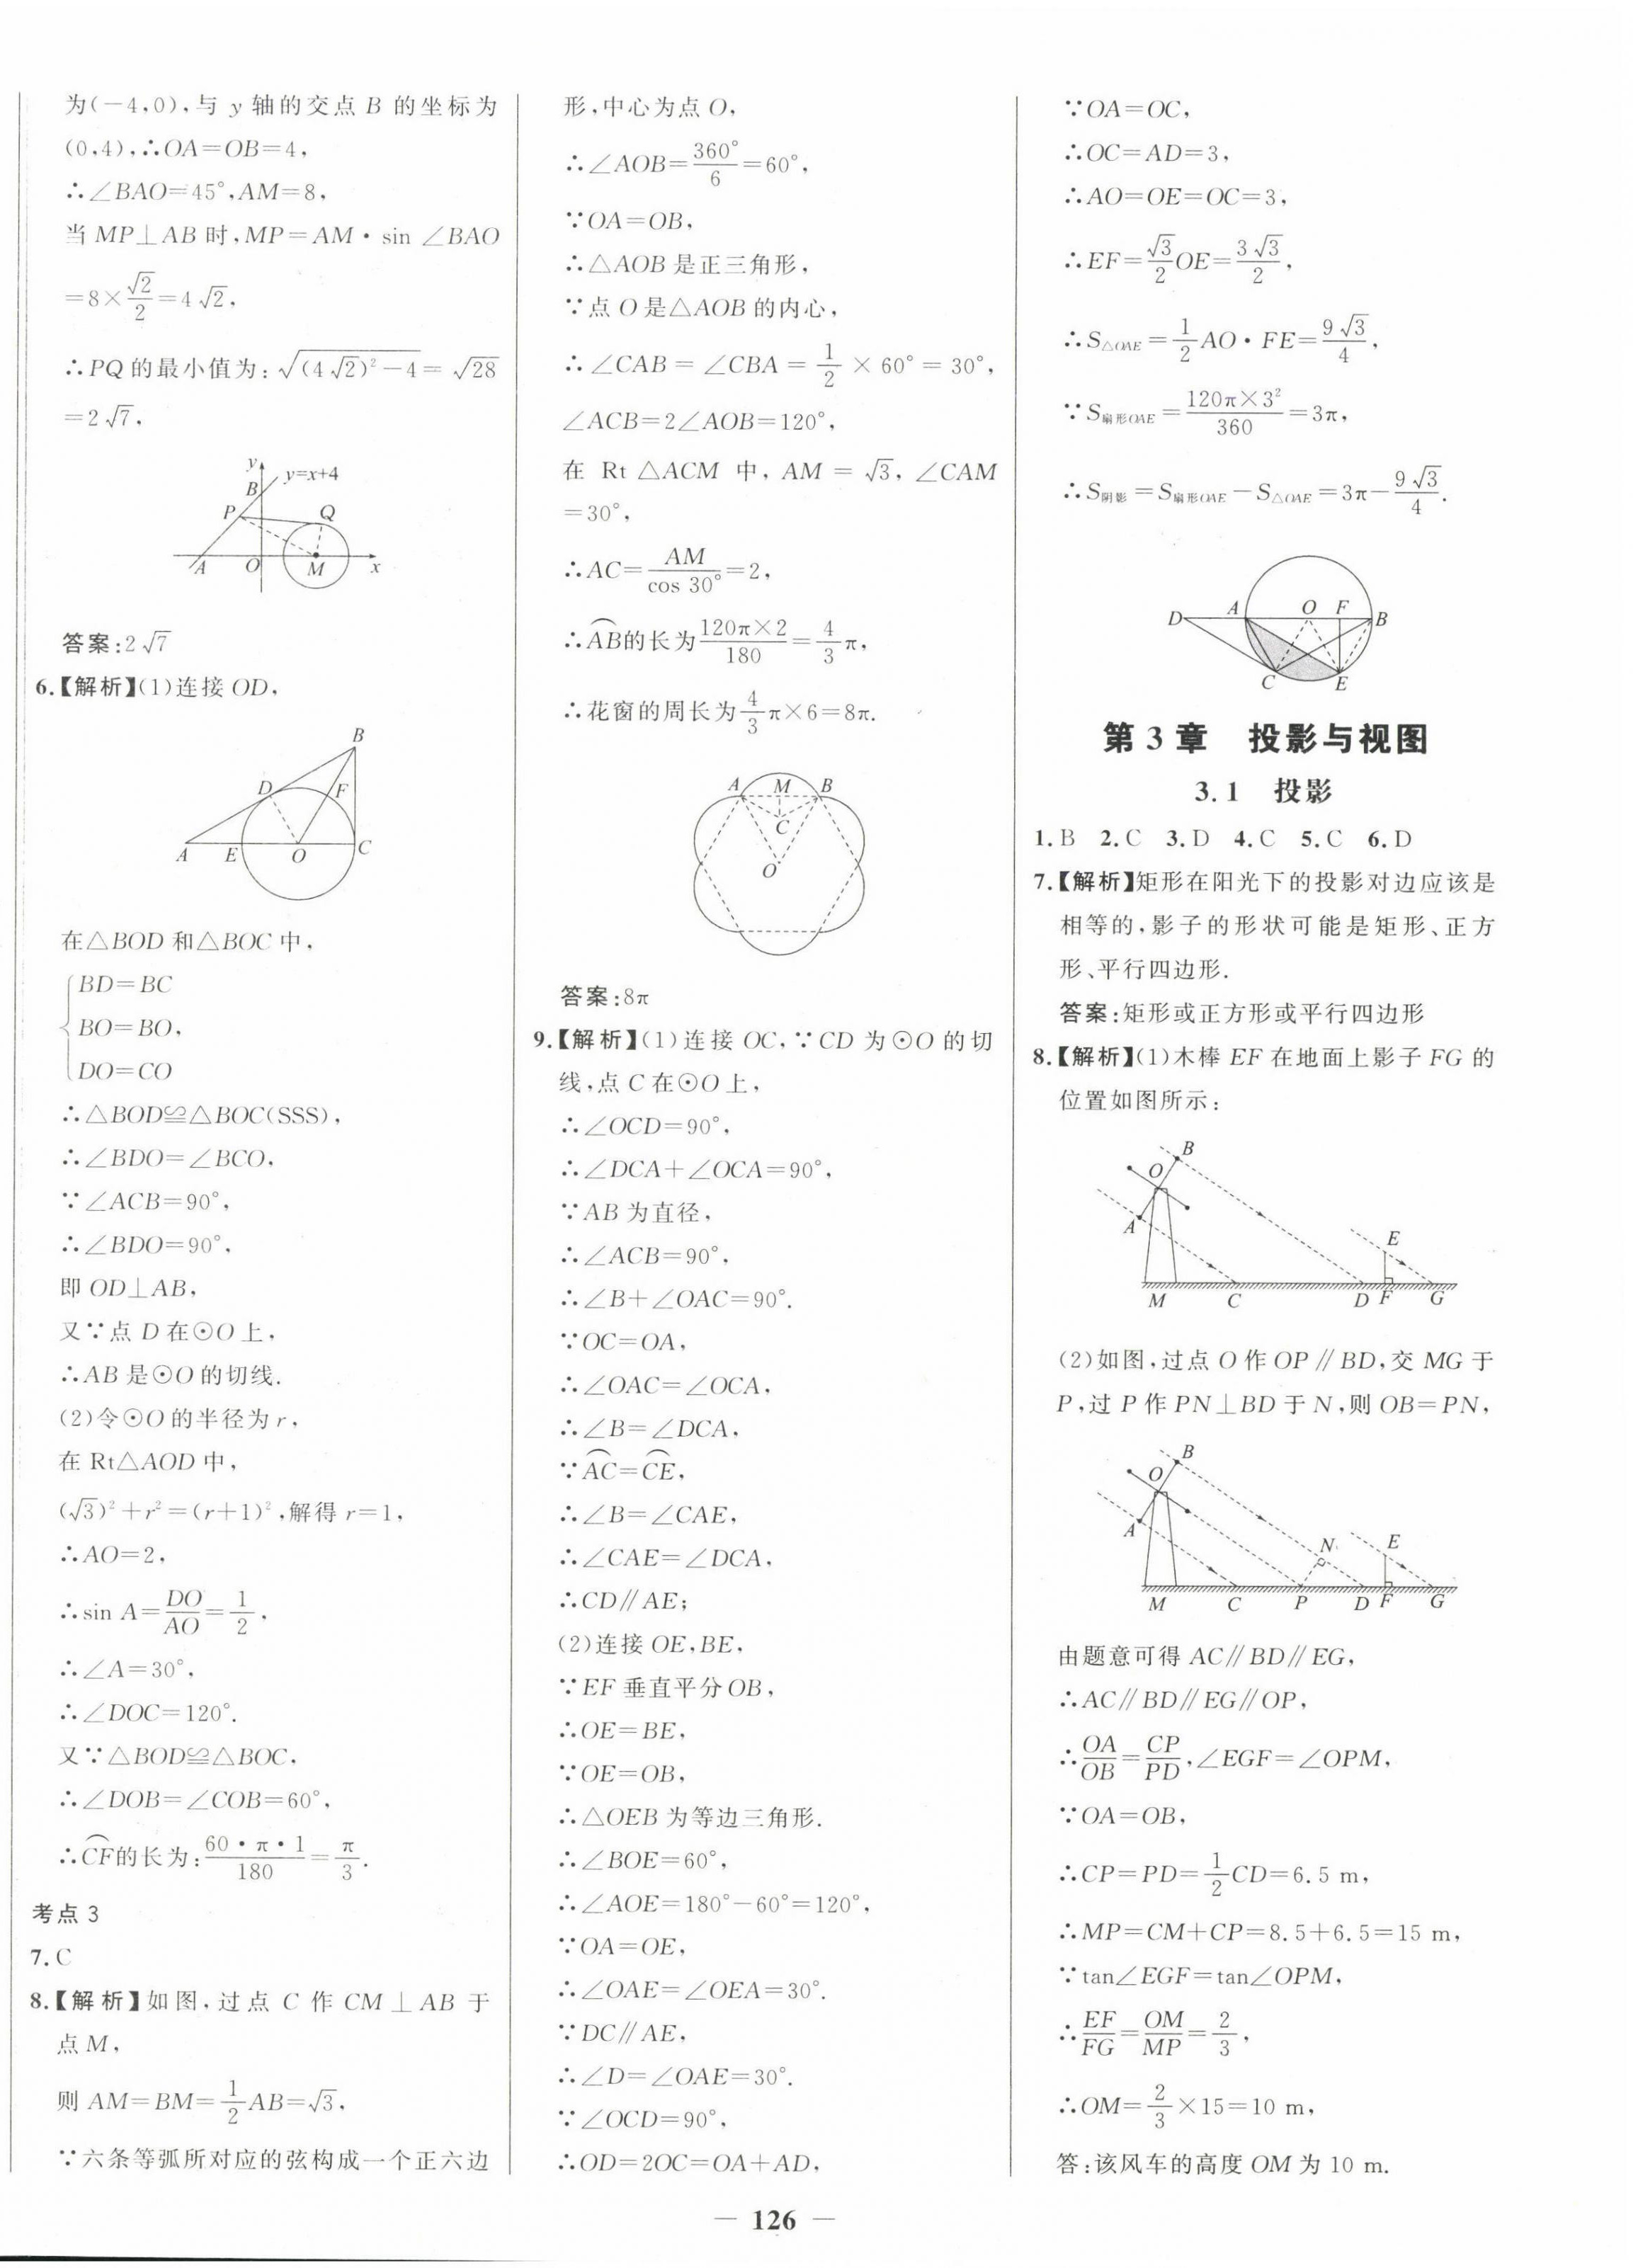 为(-4,0),与 y 轴的交点 B 的坐标为
(0,4),∴OA=OB=4,
∴∠BAO=45°,AM=8,
当 MP⊥AB 时,MP=AM·sin ∠BAO
=8×√2/2=4√2,
∴PQ 的最小值为:√((4√2)²-4)=√28
=2√7,
y
y=x+4
B
P
Q
A
O
M
x
答案:2√7
6.【解析】(1)连接 OD,
B
D
F
A
E
O
C
在△BOD 和△BOC 中,
BD=BC
BO=BO,
DO=CO
∴△BOD≌△BOC(SSS),
∴∠BDO=∠BCO,
∵∠ACB=90°,
∴∠BDO=90°,
即 OD⊥AB,
又∵点 D 在⊙O 上,
∴AB 是⊙O 的切线.
(2)令⊙O 的半径为 r,
在 Rt△AOD 中,
(√3)²+r²=(r+1)²,解得 r=1,
∴AO=2,
∴sin A=DO/AO=1/2,
∴∠A=30°,
∴∠DOC=120°.
又∵△BOD≌△BOC,
∴∠DOB=∠COB=60°,
∴⌒CF的长为:60·π·1/180=π/3.
考点 3
7.C
8.【解析】如图,过点 C 作 CM⊥AB 于
点 M,
则 AM=BM=1/2AB=√3,
∵六条等弧所对应的弦构成一个正六边
形,中心为点 O,
∴∠AOB=360°/6=60°,
∵OA=OB,
∴△AOB 是正三角形,
∵点 O 是△AOB 的内心,
∴∠CAB=∠CBA=1/2×60°=30°,
∠ACB=2∠AOB=120°,
在 Rt △ACM 中,AM=√3,∠CAM
=30°,
∴AC=AM/cos 30°=2,
∴⌒AB的长为120π×2/180=4/3π,
∴花窗的周长为4/3π×6=8π.
A
M
B
C
O
答案:8π
9.【解析】(1)连接 OC,∵CD 为⊙O 的切
线,点 C 在⊙O 上,
∴∠OCD=90°,
∴∠DCA+∠OCA=90°,
∵AB 为直径,
∴∠ACB=90°,
∴∠B+∠OAC=90°.
∵OC=OA,
∴∠OAC=∠OCA,
∴∠B=∠DCA,
∵⌒AC=⌒CE,
∴∠B=∠CAE,
∴∠CAE=∠DCA,
∴CD∥AE;
(2)连接 OE,BE,
∵EF 垂直平分 OB,
∴OE=BE,
∵OE=OB,
∴△OEB 为等边三角形.
∴∠BOE=60°,
∴∠AOE=180°-60°=120°,
∵OA=OE,
∴∠OAE=∠OEA=30°.
∵DC∥AE,
∴∠D=∠OAE=30°.
∵∠OCD=90°,
∴OD=2OC=OA+AD,
∵OA=OC,
∴OC=AD=3,
∴AO=OE=OC=3,
∴EF=√3/2OE=3√3/2,
∴S△OAE=1/2AO·FE=9√3/4,
∵S扇形OAE=120π×3²/360=3π,
∴S阴影=S扇形OAE-S△OAE=3π-9√3/4.
D
A
O
F
B
C
E
第 3 章 投影与视图
3.1 投影
1.B 2.C 3.D 4.C 5.C 6.D
7.【解析】矩形在阳光下的投影对边应该是
相等的,影子的形状可能是矩形、正方
形、平行四边形.
答案:矩形或正方形或平行四边形
8.【解析】(1)木棒 EF 在地面上影子 FG 的
位置如图所示:
B
O
A
E
M
C
D
F
G
(2)如图,过点 O 作 OP∥BD,交 MG 于
P,过 P 作 PN⊥BD 于 N,则 OB=PN,
B
O
A
N
E
M
C
P
D
F
G
由题意可得 AC∥BD∥EG,
∴AC∥BD∥EG∥OP,
∴OA/OB=CP/PD,∠EGF=∠OPM,
∵OA=OB,
∴CP=PD=1/2CD=6.5 m,
∴MP=CM+CP=8.5+6.5=15 m,
∵tan∠EGF=tan∠OPM,
∴EF/FG=OM/MP=2/3,
∴OM=2/3×15=10 m,
答:该风车的高度 OM 为 10 m.
— 126 —